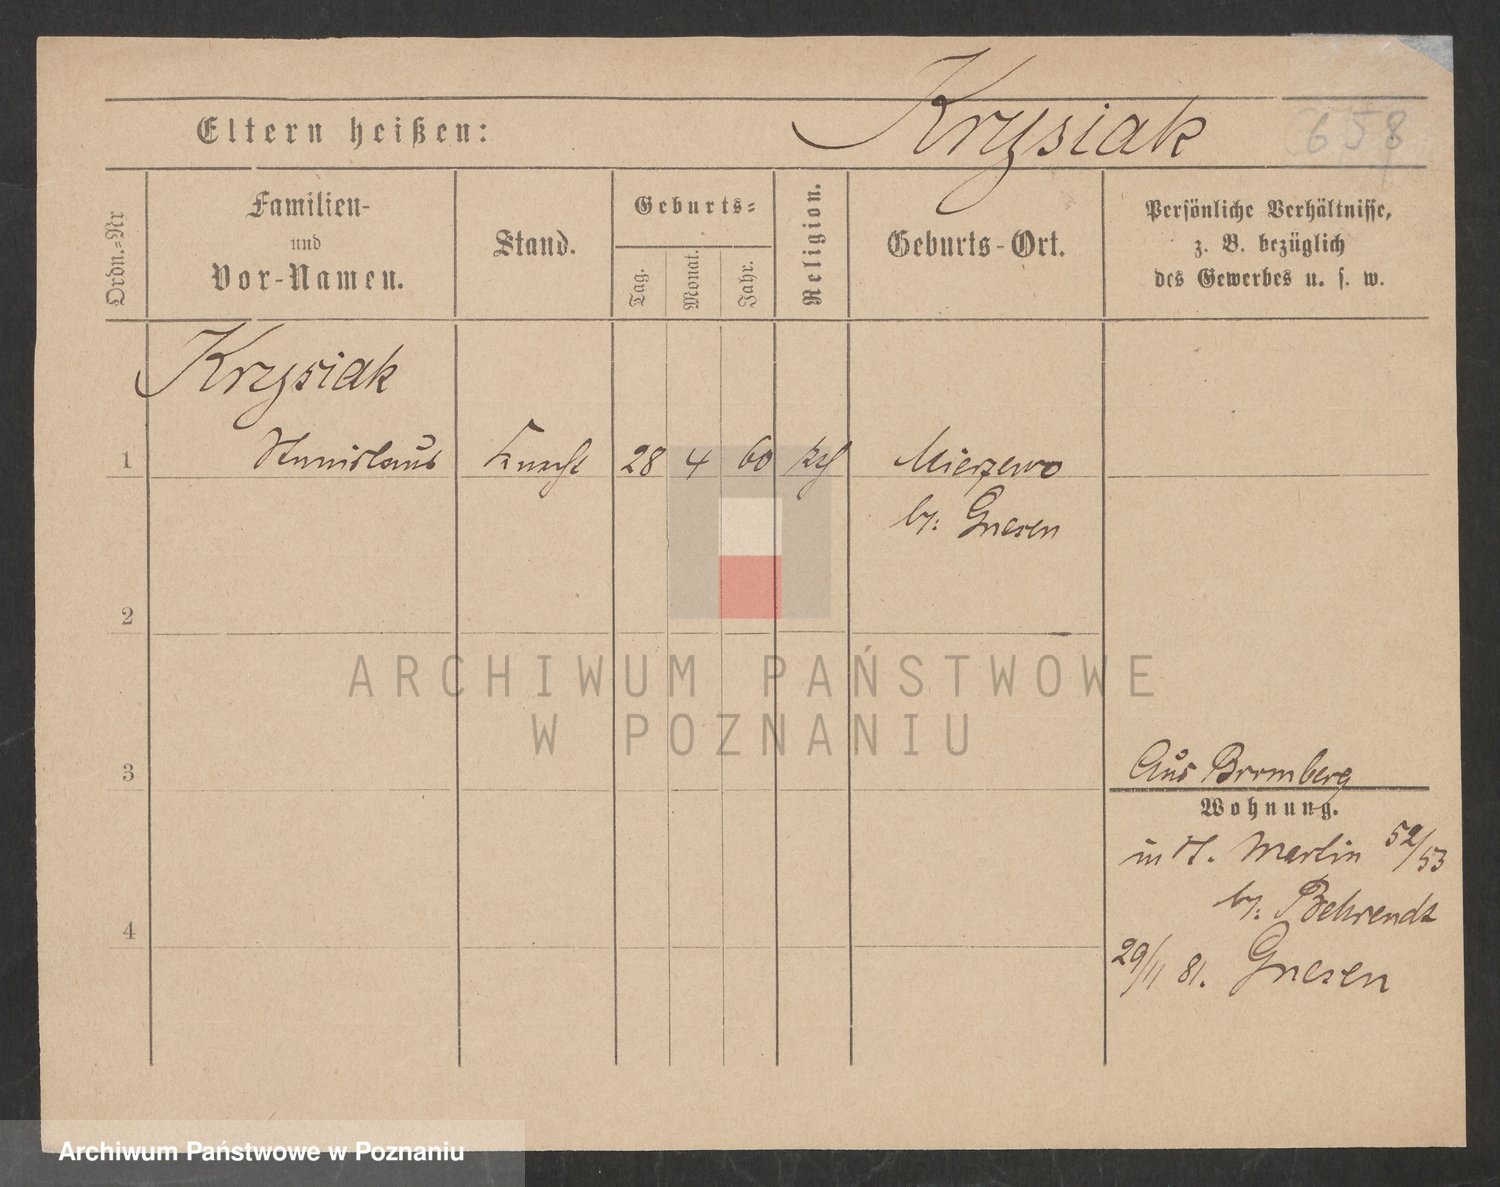 Eltern heißen: Krysiak 658
Ordn.-Nr
Familien-
und
Vor-Namen.
Stand.
Geburts-
Tag. Monat. Jahr.
Religion.
Geburts-Ort.
Persönliche Verhältnisse,
z. B. bezüglich
des Gewerbes u. s. w.
Krysiak
1 Stanislaus Knecht 28 4 60 kth Mierzewo
by: Gnesen
2
3
4
Aus Bromberg
Wohnung.
in St. Martin 52/53
by: Behrendt
29/11 81. Gnesen
ARCHIWUM PAŃSTWOWE
W POZNANIU
Archiwum Państwowe w Poznaniu